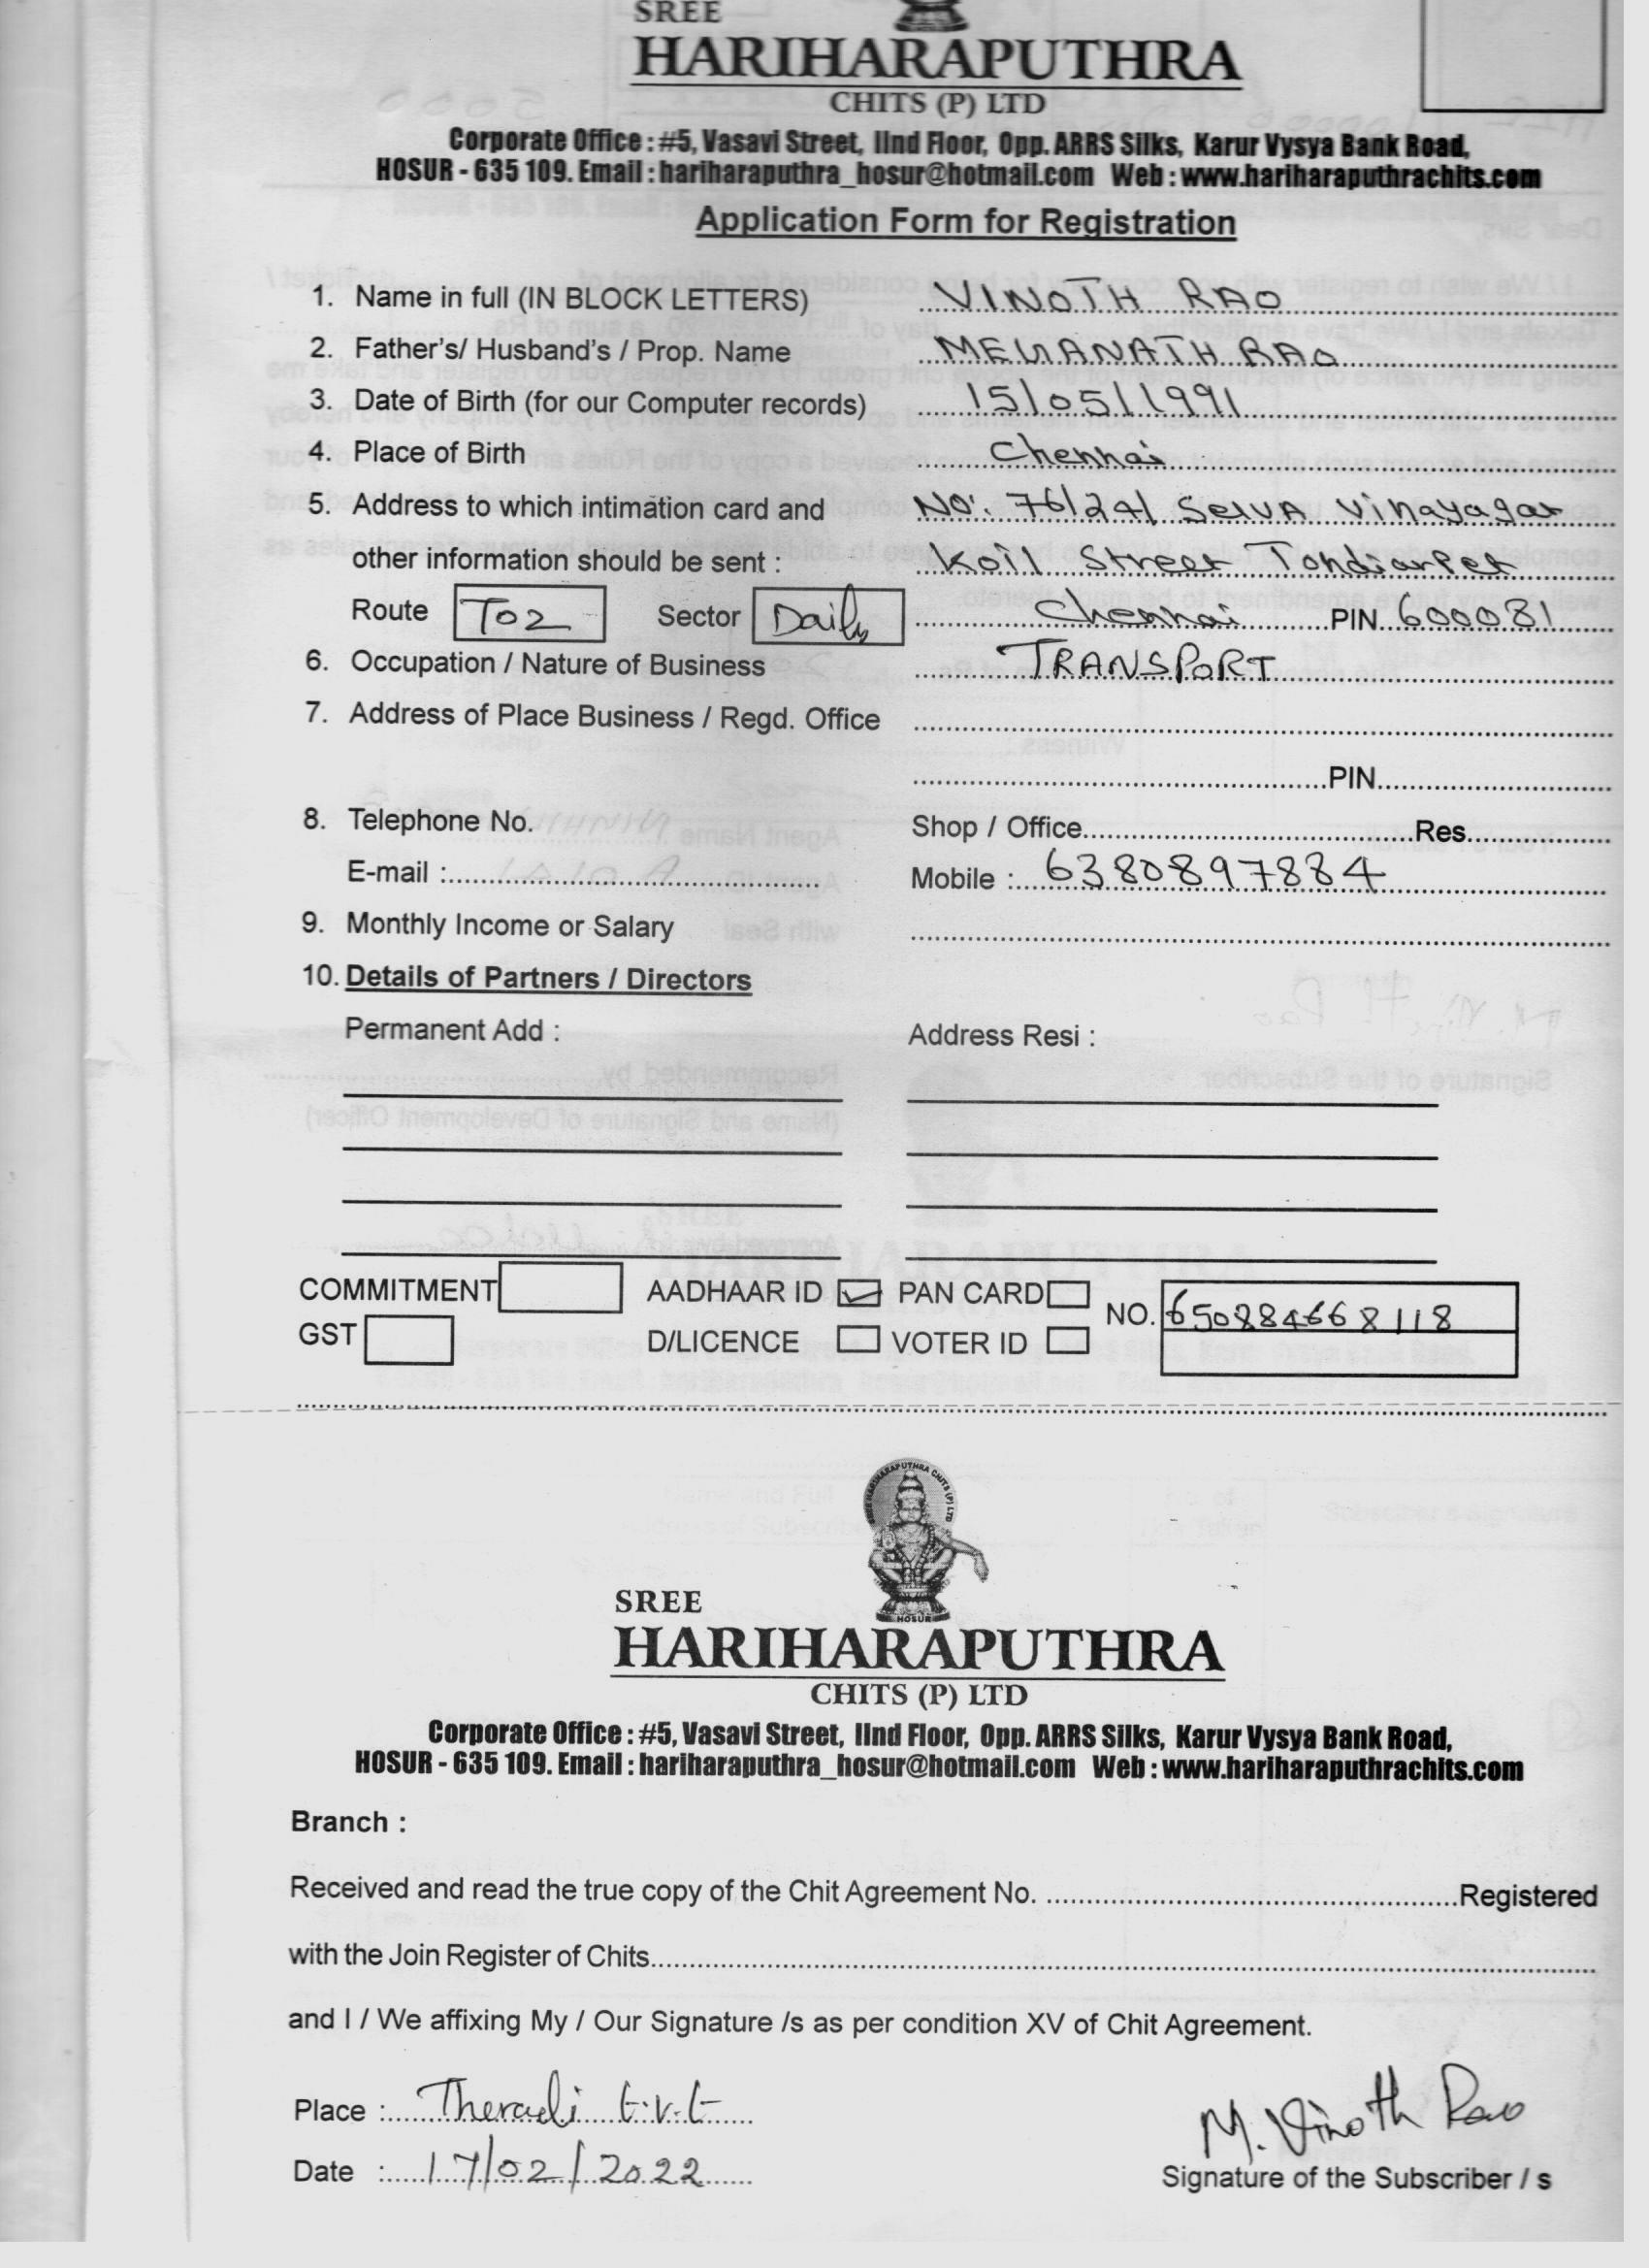 SREE
HARIHARAPUTHRA
CHITS (P) LTD
Corporate Office : #5, Vasavi Street, IInd Floor, Opp. ARRS Silks, Karur Vysya Bank Road,
HOSUR - 635 109. Email : hariharaputhra_hosur@hotmail.com Web : www.hariharaputhrachits.com
Application Form for Registration
1. Name in full (IN BLOCK LETTERS) VINOTH RAO
2. Father's/ Husband's / Prop. Name MEGANATH RAO
3. Date of Birth (for our Computer records) 15/05/1991
4. Place of Birth Chennai
5. Address to which intimation card and No: 76/24/ Selva Vinayagar
other information should be sent : Koil Street Tondiarpet
Route T02 Sector Daily Chennai PIN 600081
6. Occupation / Nature of Business TRANSPORT
7. Address of Place Business / Regd. Office
PIN
8. Telephone No. Shop / Office Res.
E-mail : Mobile : 6380897884
9. Monthly Income or Salary
10. Details of Partners / Directors
Permanent Add : Address Resi :
COMMITMENT AADHAAR ID ✓ PAN CARD NO. 650284668118
GST D/LICENCE VOTER ID
SREE HARIHARAPUTHRA CHITS (P) LTD
HOSUR
SREE
HARIHARAPUTHRA
CHITS (P) LTD
Corporate Office : #5, Vasavi Street, IInd Floor, Opp. ARRS Silks, Karur Vysya Bank Road,
HOSUR - 635 109. Email : hariharaputhra_hosur@hotmail.com Web : www.hariharaputhrachits.com
Branch :
Received and read the true copy of the Chit Agreement No. Registered
with the Join Register of Chits
and I / We affixing My / Our Signature /s as per condition XV of Chit Agreement.
Place : Theradi t.v.t
Date : 17/02/2022
M. Vinoth Rao
Signature of the Subscriber / s